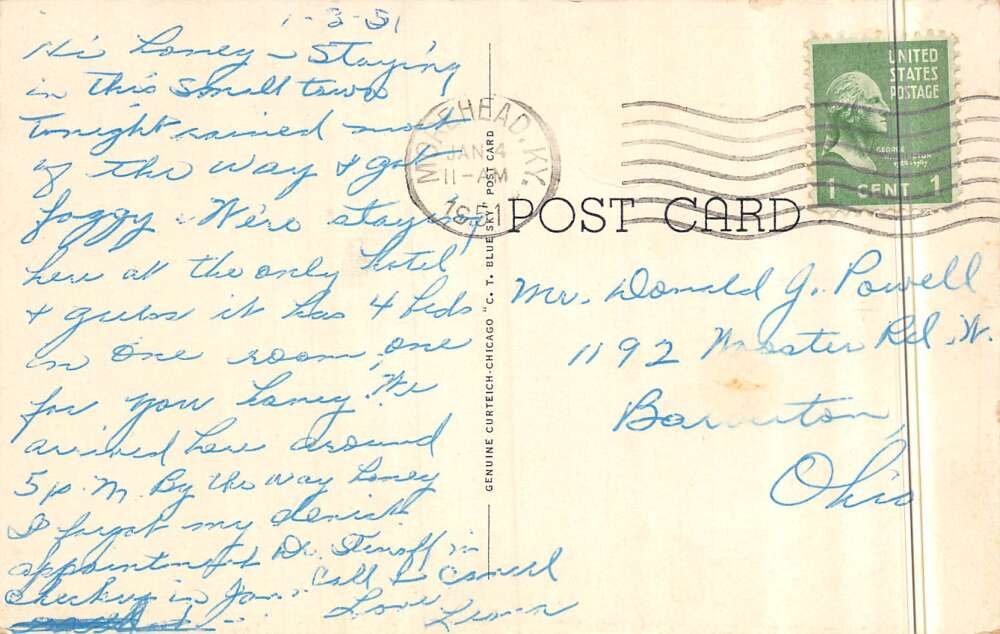 1-3-51
Hi honey - Staying
in this small town
tonight rained most
of the way & got
foggy. We're staying
here at the only hotel
& guess it has 4 beds
in one room, one
for you honey. We
arrived here around
5 p.m. By the way honey
I forgot my dentist
appointment Dr. in
checkup in Jan. Call & cancel
Love
MOREHEAD, KY.
JAN 4
11-AM
1951
GENUINE CURTEICH-CHICAGO "C. T. BLUE SKY" POST CARD
POST CARD
UNITED
STATES
POSTAGE
GEORGE WASHINGTON
1 CENT 1
Mr. Donald J. Powell
1192 Wooster Rd. W.
Barberton,
Ohio